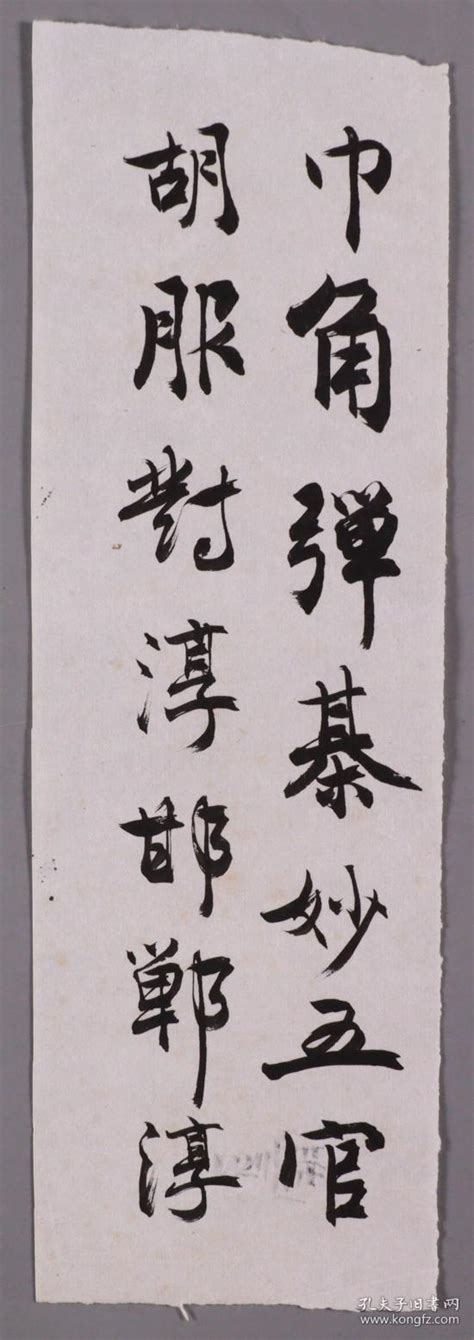 巾角弹棊妙五官
胡服對淳邯鄲淳
孔夫子旧書网
www.kongfz.com